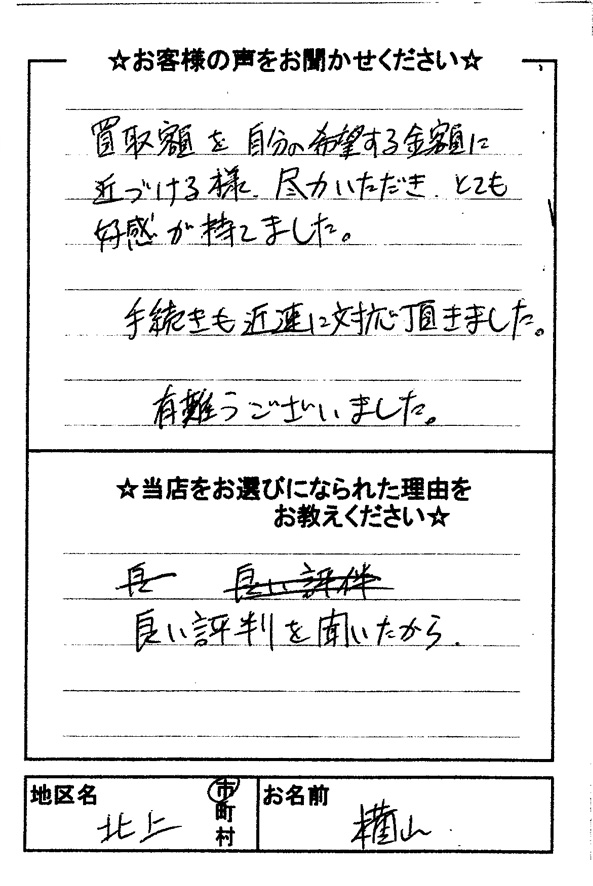 ☆お客様の声をお聞かせください☆
買取額を自分の希望する金額に
近づける様、尽力いただき、とても
好感が持てました。
手続きも迅速に対応頂きました。
有難うございました。
☆当店をお選びになられた理由を
お教えください☆
良い評判を聞いたから.
地区名 北上 市町村
お名前 横山